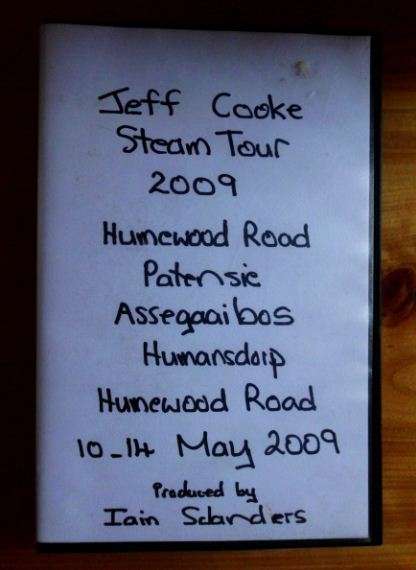 Jeff Cooke
Steam Tour
2009
Humewood Road
Patensie
Assegaaibos
Humansdorp
Humewood Road
10-14 May 2009
Produced by
Iain Sclanders